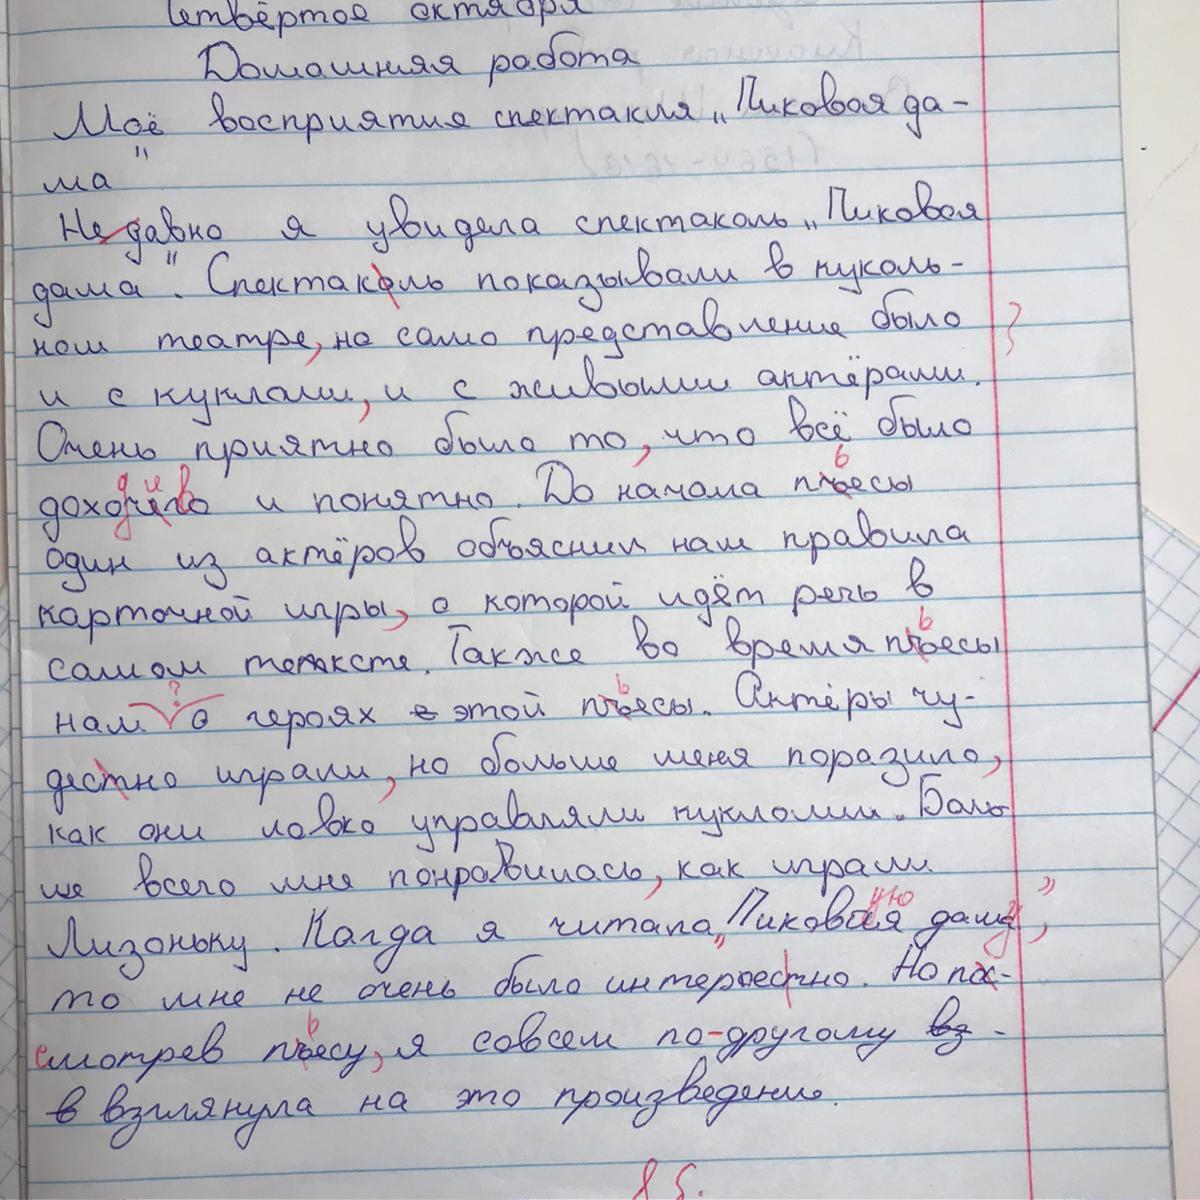 Четвёртое октября
Домашняя работа
Моё восприятия спектакля „Пиковая да-
ма"
Не давно я увидела спектаколь „Пиковая
дама". Спектаколь показывали в куколь-
ном театре, но само представление было
и с куклами, и с живыми актёрами.
Очень приятно было то, что всё было
доходчиво и понятно. До начала пьесы
один из актёров объяснил нам правила
карточной игры, о которой идёт речь в
самом тексте. Также во время пьесы
нам ? о героях в этой пьесы. Актёры чу-
дестно играли, но больше меня поразило,
как они ловко управляли кукломи. Боль
ше всего мне понравилась, как играли
Лизоньку. Когда я читала „Пиковую даму",
то мне не очень было интерестно. Но по-
смотрев пьесу, я совсем по-другому вз-
в взглянула на это произведение.
8 б.